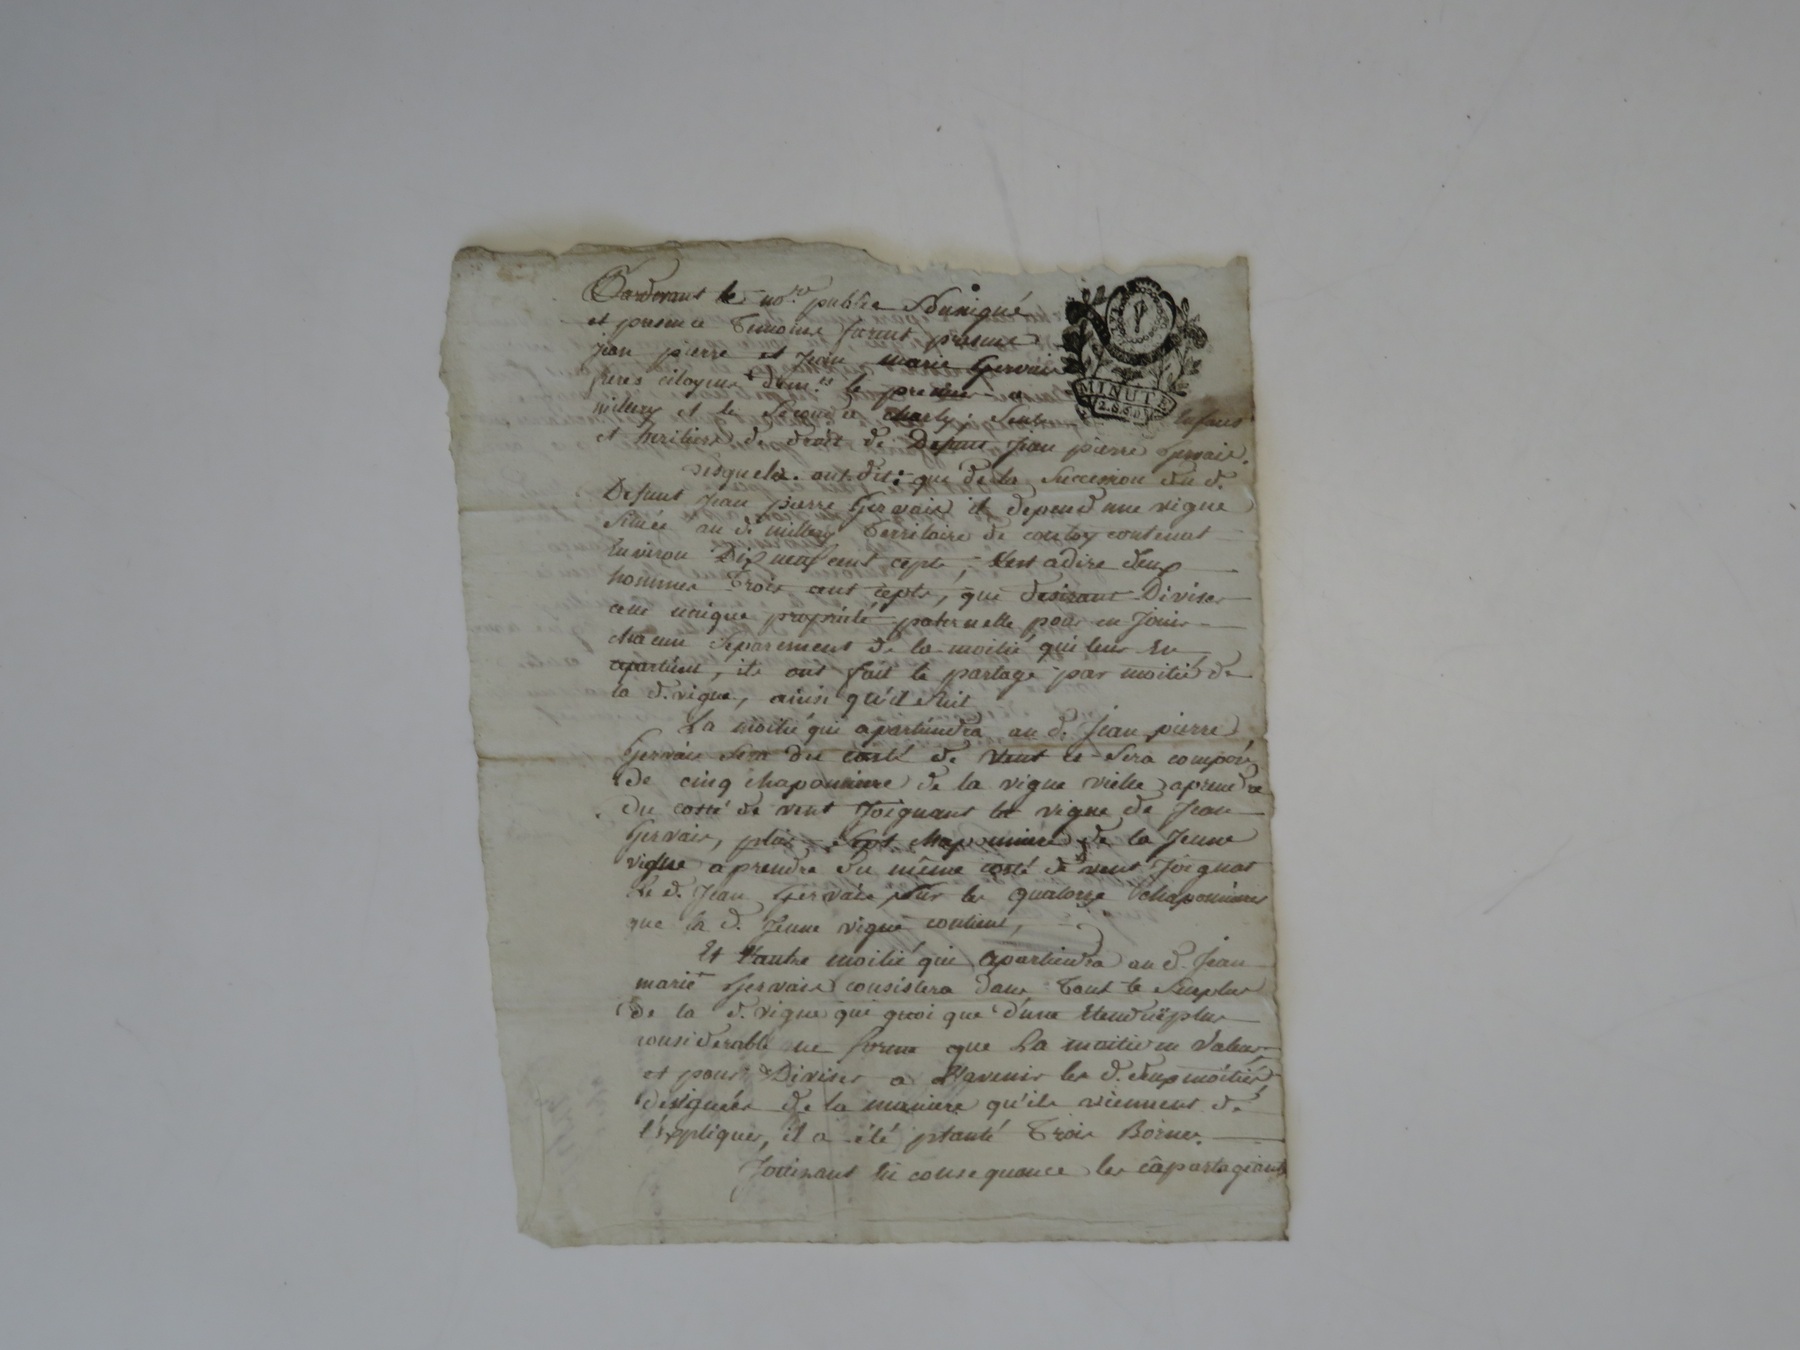 Pardevant le no.re public Soussigné
et presence Temoins furent presens
Jean pierre et Jean marie Gervais
freres citoyens dem.ts le premier a
millery et le Second a charly, Seuls Enfans
et heritiers de droit de Defunt Jean pierre Gervais.
Lesquels ont dit: que de la Succession du d.
Defunt Jean pierre Gervais il depend une vigne
Située au d. millery Territoire de contenant
Environ Dix neuf cent ceps, c'est adire deux
hommes Trois cent ceps, que desirant Diviser
cette unique propriété paternelle pour en Jouir
chacun Separement de la moitié qui leur En
apartient, ils ont fait le partage par moitié de
la d. vigne, ainsi qu'il Suit
La moitié qui apartiendra au d. Jean pierre
Gervais Sera du costé de vent et Sera composée
De cinq chaponniere de la vigne vielle a prendre
du costé de vent Joignant la vigne de Jean
Gervais, plus Sept chaponniere de la Jeune
vigne a prendre du même costé de vent Joignat
le d. Jean Gervais, Sur les quatorze chaponnieres
que la d. Jeune vigne contient,
Et l'autre moitié qui apartiendra au d. Jean
marie Gervais consistera dans Tout le Surplus
de la d. vigne qui quoi que d'une Etenduë plus
considerable ne forme que La moitié en valeur,
et pour Diviser a L'avenir les d. deux moitiés
désignées de la maniere qu'ils viennent de
l'Expliquer, il a été planté Trois Bornes.
Jouissant En consequance les copartageants
MINUTE